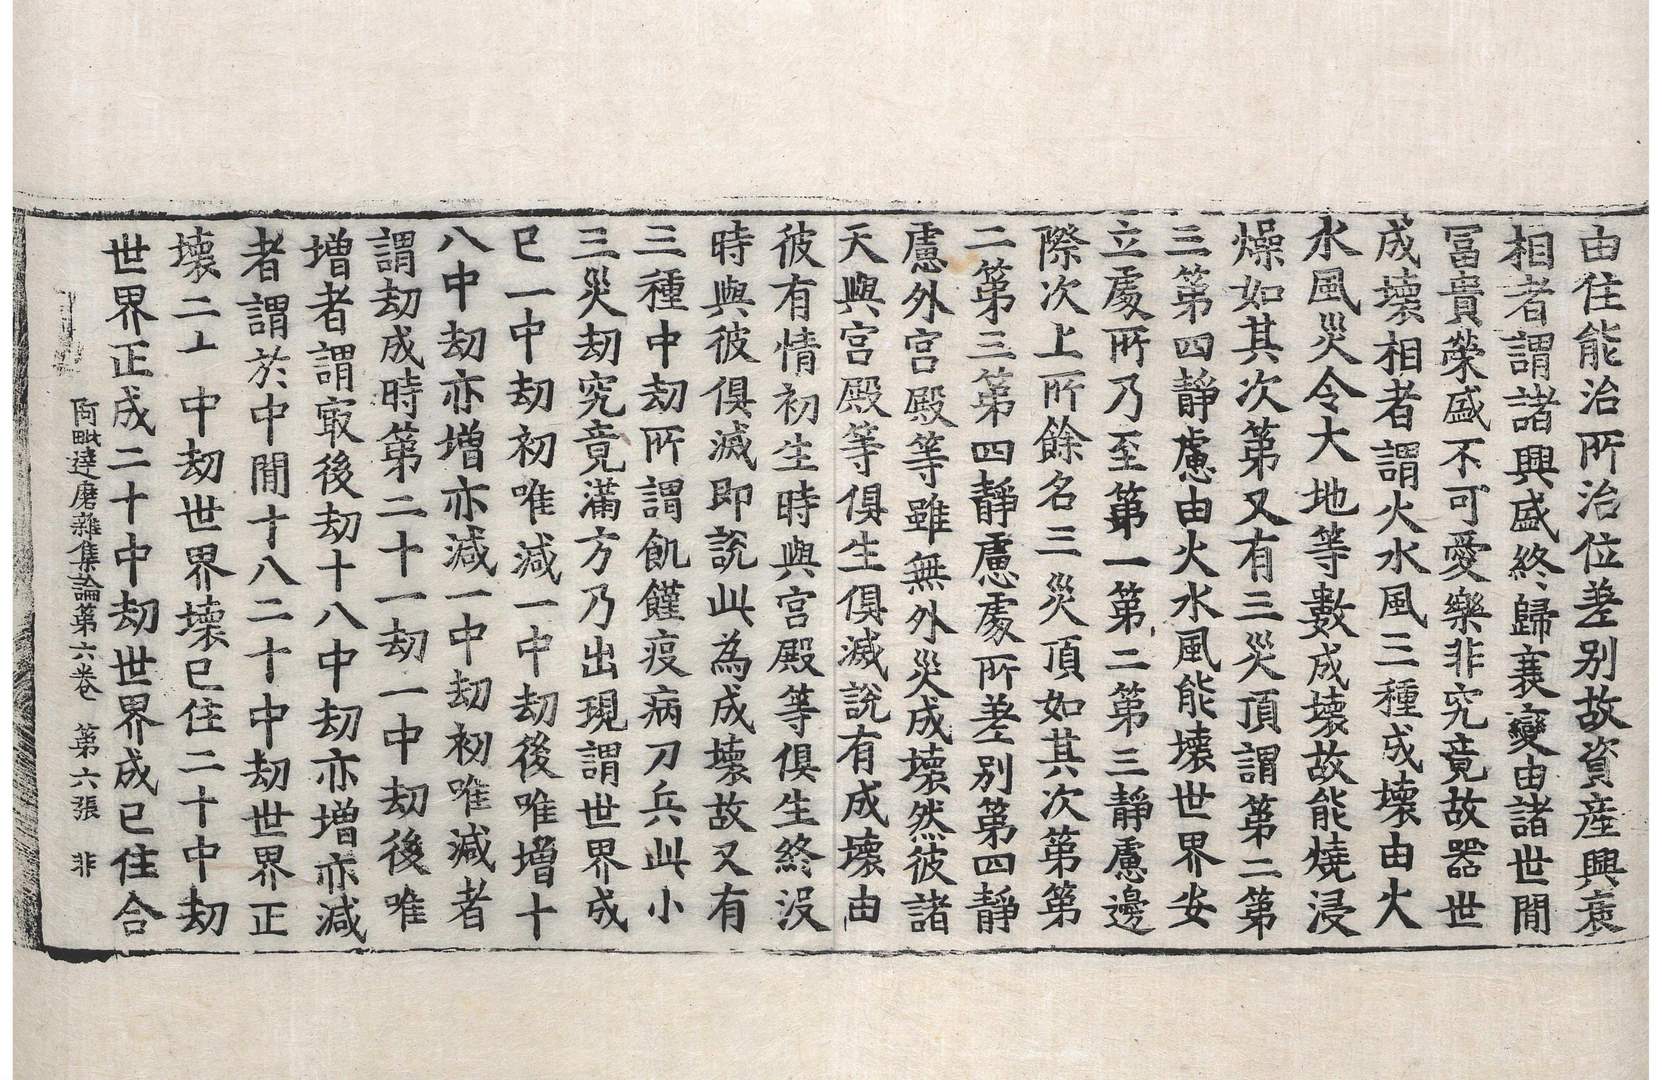 由住能治所治位差別故資産興衰
相者謂諸興盛終歸衰變由諸世閒
冨貴榮盛不可愛樂非究竟故器世
成壞相者謂火水風三種成壞由火
水風災令大地等數成壞故能燒浸
燥如其次第又有三災頂謂第二第
三第四靜慮由火水風能壞世界安
立處所乃至第一第二第三靜慮邊
際次上所餘名三災頂如其次第第
二第三第四靜慮處所差別第四靜
慮外宮殿等雖無外災成壞然彼諸
天與宮殿等俱生俱滅說有成壞由
彼有情初生時與宮殿等俱生終沒
時與彼俱滅即說此為成壞故又有
三種中劫所謂飢饉疫病刀兵此小
三災劫究竟滿方乃出現謂世界成
已一中劫初唯減一中劫後唯增十
八中劫亦增亦減一中劫初唯減者
謂劫成時第二十一劫一中劫後唯
増者謂冣後劫十八中劫亦增亦減
者謂於中閒十八二十中劫世界正
壞二 中劫世界壞已住二十中劫
世界正成二十中劫世界成已住合
阿毗達磨雜集論第六卷 第六張 非